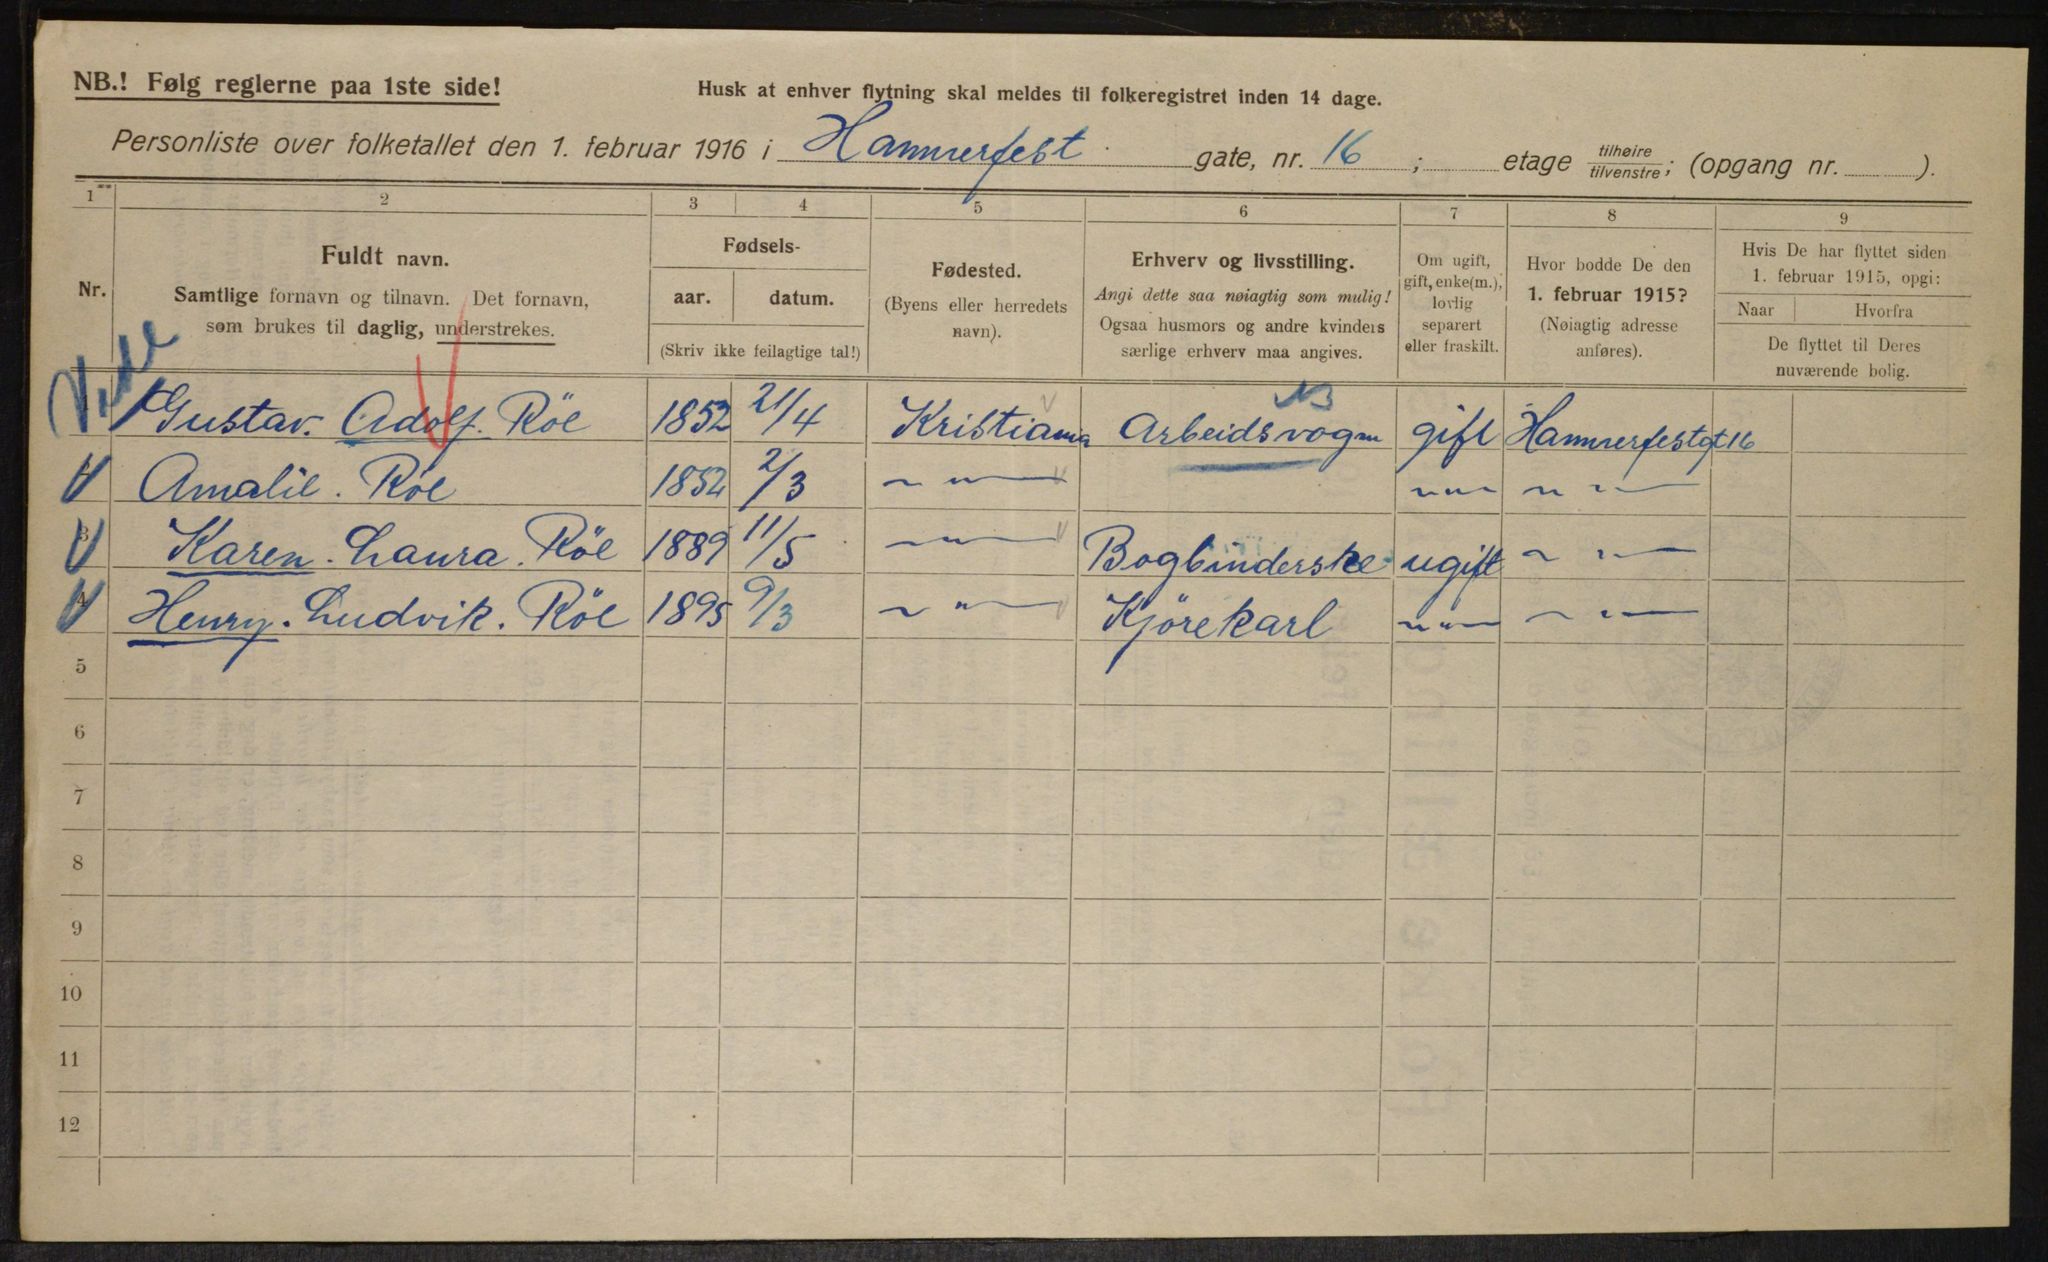 NB.! Følg reglerne paa 1ste side!
Husk at enhver flytning skal meldes til folkeregistret inden 14 dage.
Personliste over folketallet den 1. februar 1916 i Hammerfest gate, nr. 16 ; etage tilhøire/tilvenstre; (opgang nr. ).
1 2 3 4 5 6 7 8 9
Nr.
Fuldt navn.
Samtlige fornavn og tilnavn. Det fornavn,
som brukes til daglig, understrekes.
Fødsels-
aar. datum.
(Skriv ikke feilagtige tal!)
Fødested.
(Byens eller herredets
navn).
Erhverv og livsstilling.
Angi dette saa nøiagtig som mulig!
Ogsaa husmors og andre kvinders
særlige erhverv maa angives.
Om ugift,
gift, enke(m.),
lovlig
separert
eller fraskilt.
Hvor bodde De den
1. februar 1915?
(Nøiagtig adresse
anføres).
Hvis De har flyttet siden
1. februar 1915, opgi:
Naar Hvorfra
De flyttet til Deres
nuværende bolig.
Gustav. Adolf. Röe 1852 21/4 Kristiania Arbeidsvogm gift Hammerfestgt 16
Amalie. Röe 1852 2/3 — " — — " — — " —
3 Karen. Laura. Röe 1889 11/5 — " — Bogbinderske ugift — " —
4 Henry. Ludvik. Röe 1895 9/3 — " — Kjörekarl — " — — " —
5
6
7
8
9
10
11
12